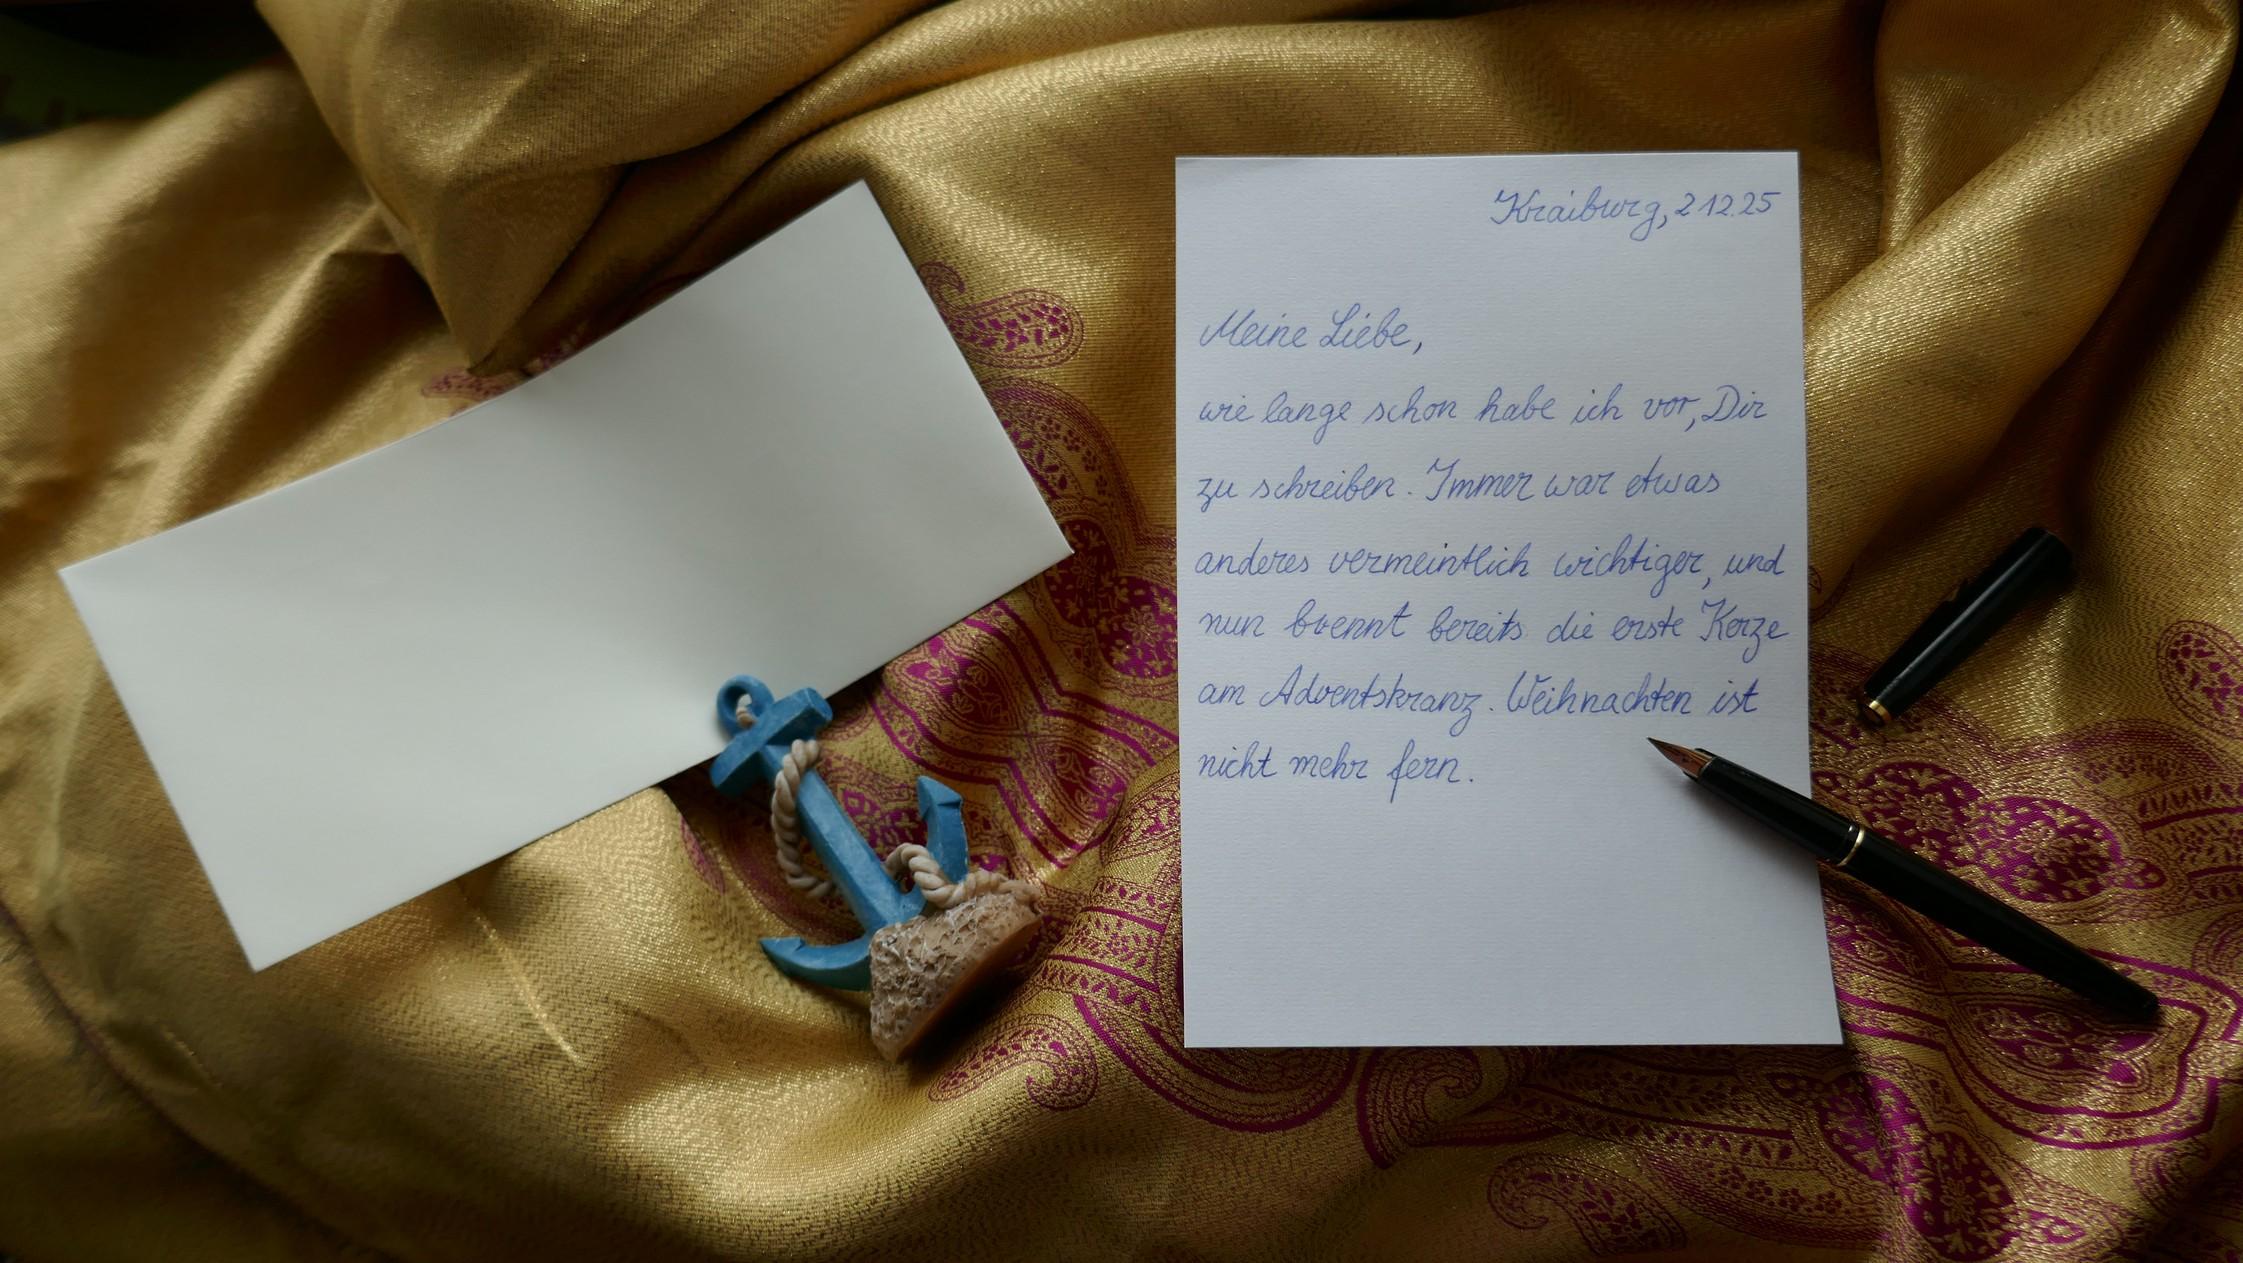 Kraiburg, 2.12.25
Meine Liebe,
wie lange schon habe ich vor, Dir
zu schreiben. Immer war etwas
anderes vermeintlich wichtiger, und
nun brennt bereits die erste Kerze
am Adventskranz. Weihnachten ist
nicht mehr fern.